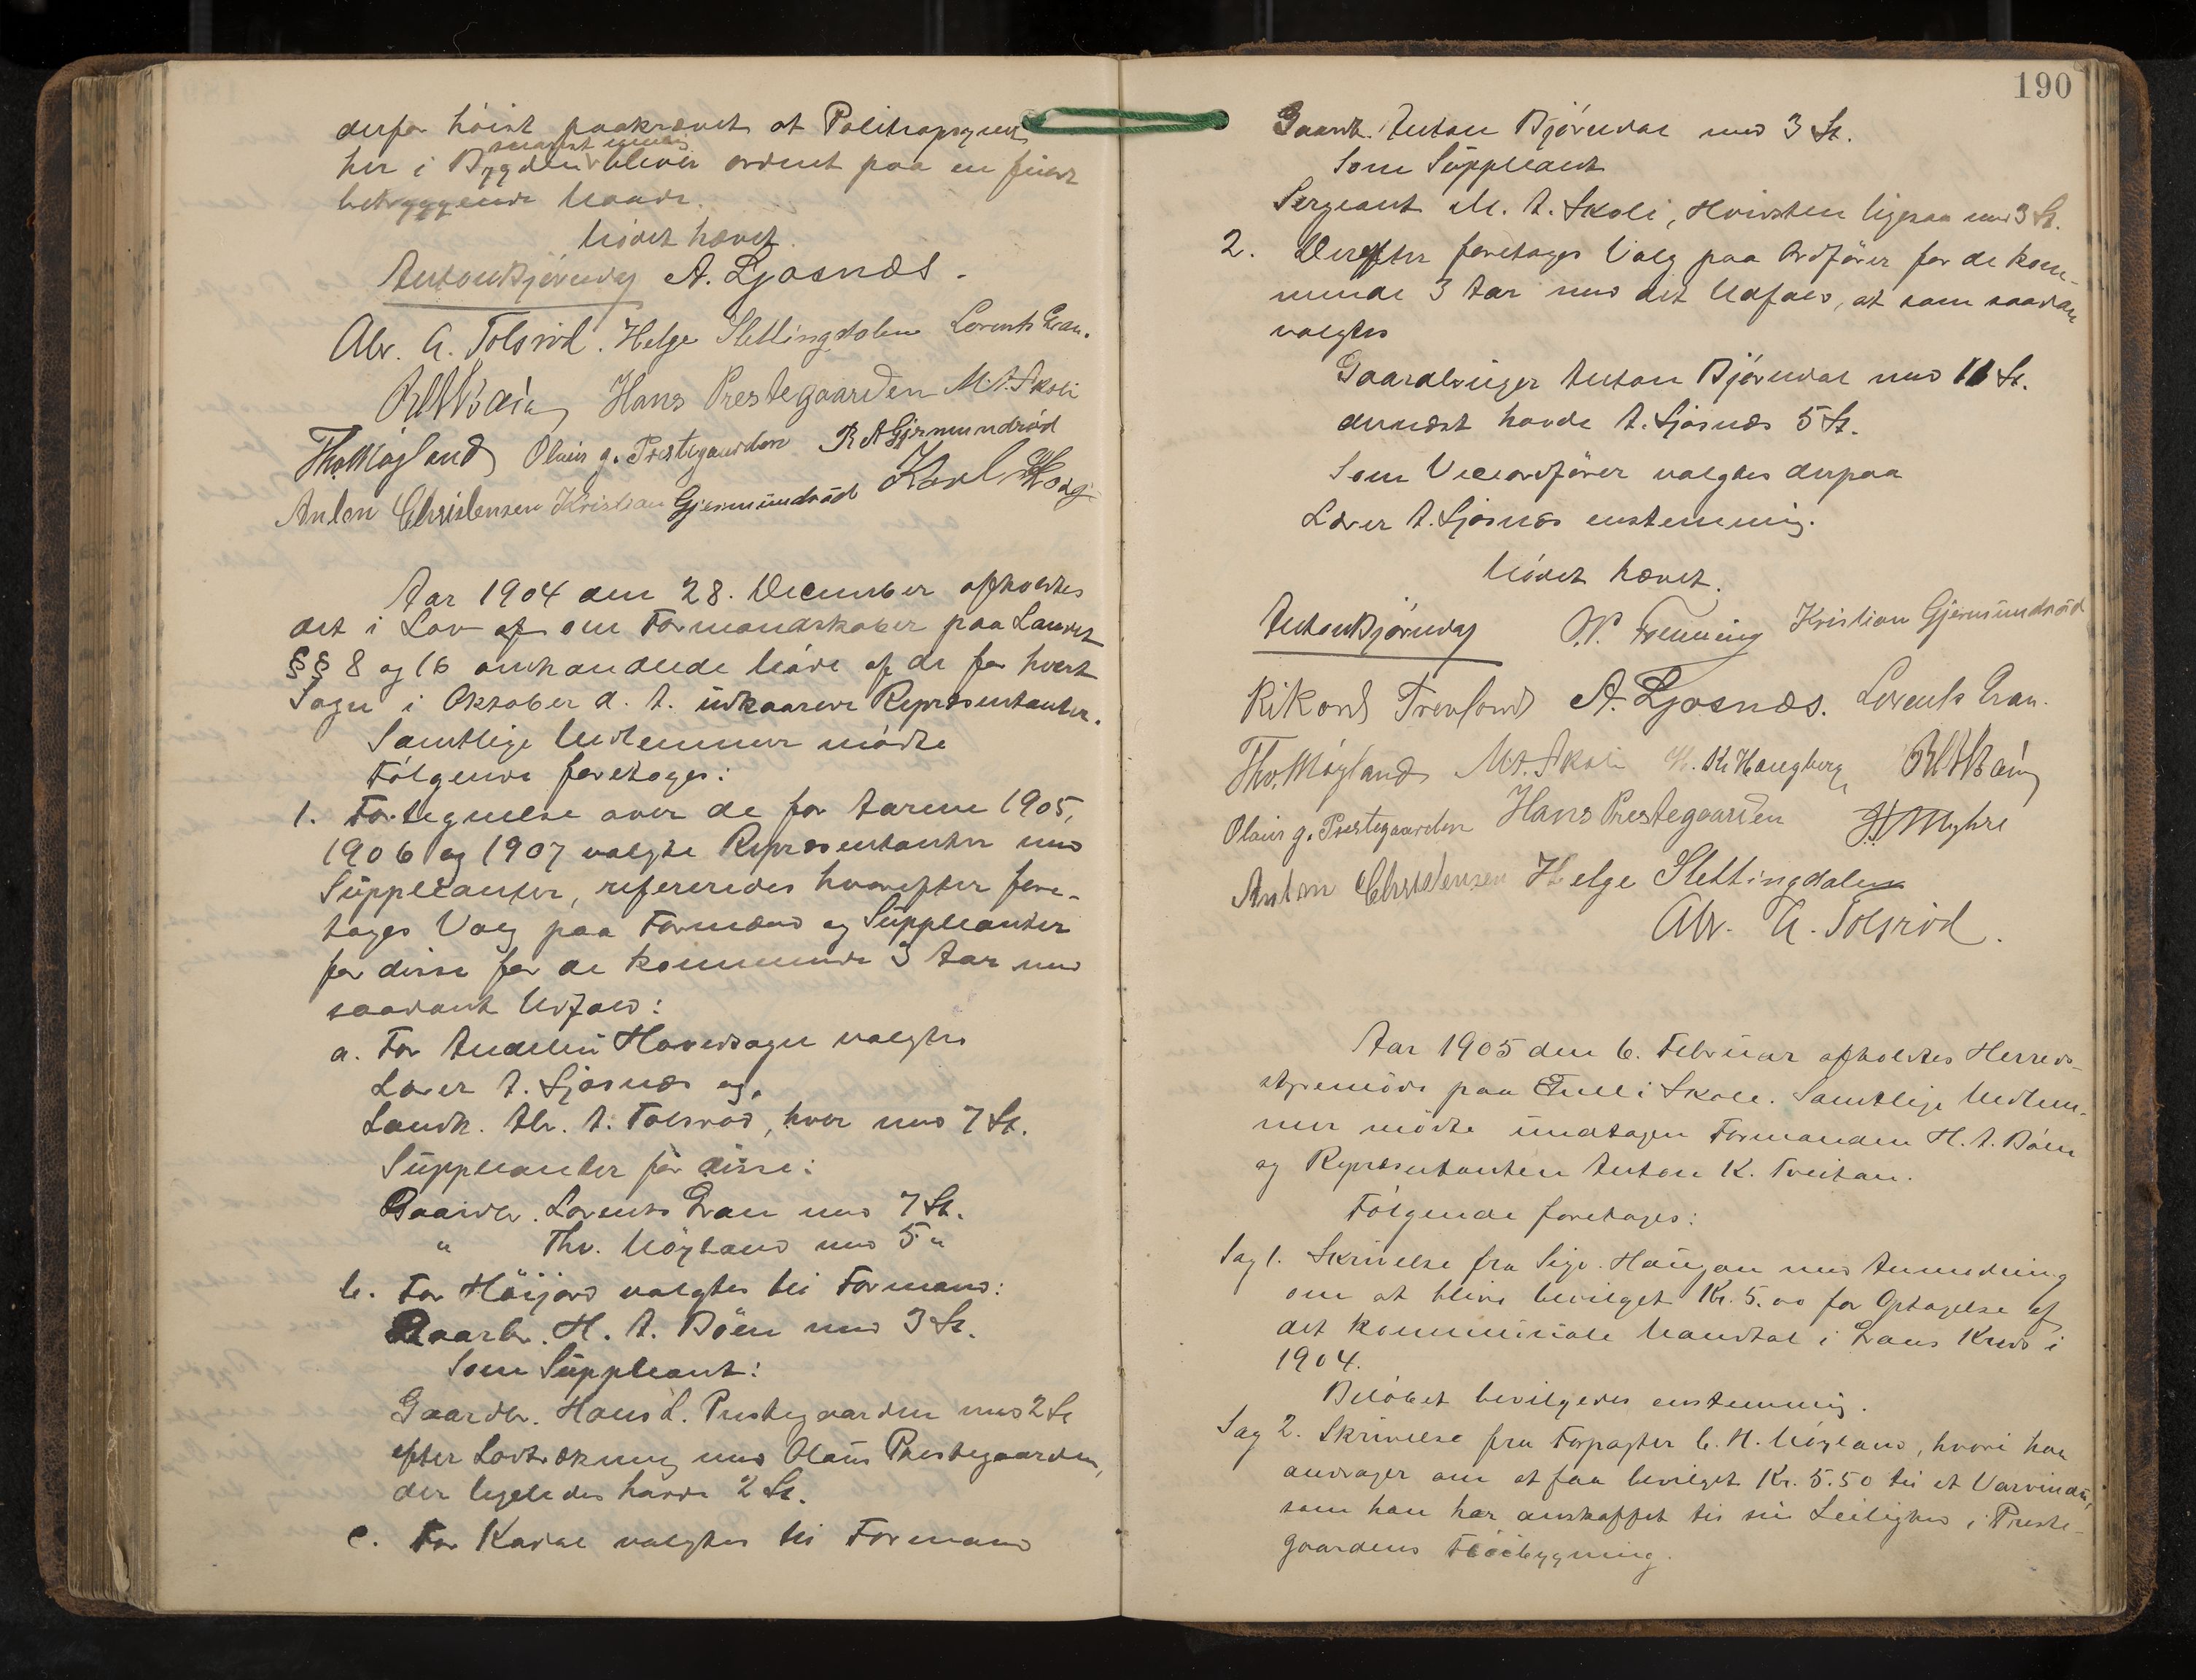 derfor høist paakrævet at Politiopsynet
snarest muli
her i Bygden bliver ordnet paa en fuldt
betryggende Maade.
Mødet hævet.
Anton Bjørndal A. Ljosnæs.
Abr. A. Tolsrød. Helge Slettingdalen Lorents Gran.
Hans Prestegaarden M. A. Skoli
Thv. Møyland Olaus G. Prestegaarden R A Gjermundrød
Anton Christensen Kristian Gjermundrød Karl Haug
Aar 1904 den 28. December afholdtes
det i Lov af om Formandskaber paa Landet
§§ 8 og 16 omhandlede Møde af de for hvert
Sogn i Oktober d. A. udkaarede Repræsentanter.
Samtlige Medlemmer mødte
Følgende foretoges:
1. Fortegnelse over de for Aarene 1905,
1906 og 1907 valgte Repræsentanter med
Suppleanter, refereredes hvorefter fore-
toges Valg paa Formænd og Suppleanter
for disse for de kommende 3 Aar med
saadant Udfald:
a. For Andebu Hovedsogn valgtes
Lærer A. Ljosnæs og
Landh. Abr. A. Tolsrød, hver med 7 St.
Suppleanter for disse:
Gaardbr. Lorents Gran med 7 St.
" Thv. Møyland med 5 "
b. For Höijord valgtes til Formand:
Gaardbr. H. A. Bøen med 3 St.
Som Suppleant:
Gaardbr. Hans L. Prestegaarden med 2 St
efter Lodtrækning med Olaus Prestegaarden,
der ligeledes havde 2 St.
c. For Kodal valgtes til Formand
190
Gaardb. Anton Bjørndal med 3 St.
Som Suppleant
Sergeant M. A. Skoli, Hvidsten ligesaa med 3 St.
2. Derefter foretoges Valg paa Ordfører for de kom-
mende 3 Aar med det Udfald, at som saadan
valgtes
Gaardbruger Anton Bjørndal med 11 St.
dernæst havde A. Ljosnæs 5 St.
Som Viceordfører valgtes derpaa
Lærer A. Ljosnæs enstemmig.
Mødet hævet.
Anton Bjørndal Kristian Gjermundrød
Rikard Trevland A. Ljosnæs. Lorents Gran.
Thv. Møyland M. A. Skoli K. Haugberg
Olaus G. Prestegaarden Hans Prestegaarden Myhre
Anton Christensen Helge Slettingdalen
Abr. A. Tolsrød.
Aar 1905 den 6. Februar afholdtes Herreds-
styremøde paa Gulli Skole. Samtlige Medlem-
mer mødte undtagen Formanden H. A. Bøen
og Repræsentanten Anton K. Treitan.
Følgende foretoges:
Sag 1. Skrivelse fra Sigv. Haugan med Anmodning
om at blive bevilget Kr. 5.00 for Optagelse af
det kommunale Mandtal i Grans Kreds i
1904.
Beløbet bevilgedes enstemmig.
Sag 2. Skrivelse fra Forpagter C. H. Møyland, hvori han
andrager om at faa bevilget Kr. 5.50 til et Varvindu,
som han har anskaffet til sin Leilighed i Preste-
gaardens Fløibygning.